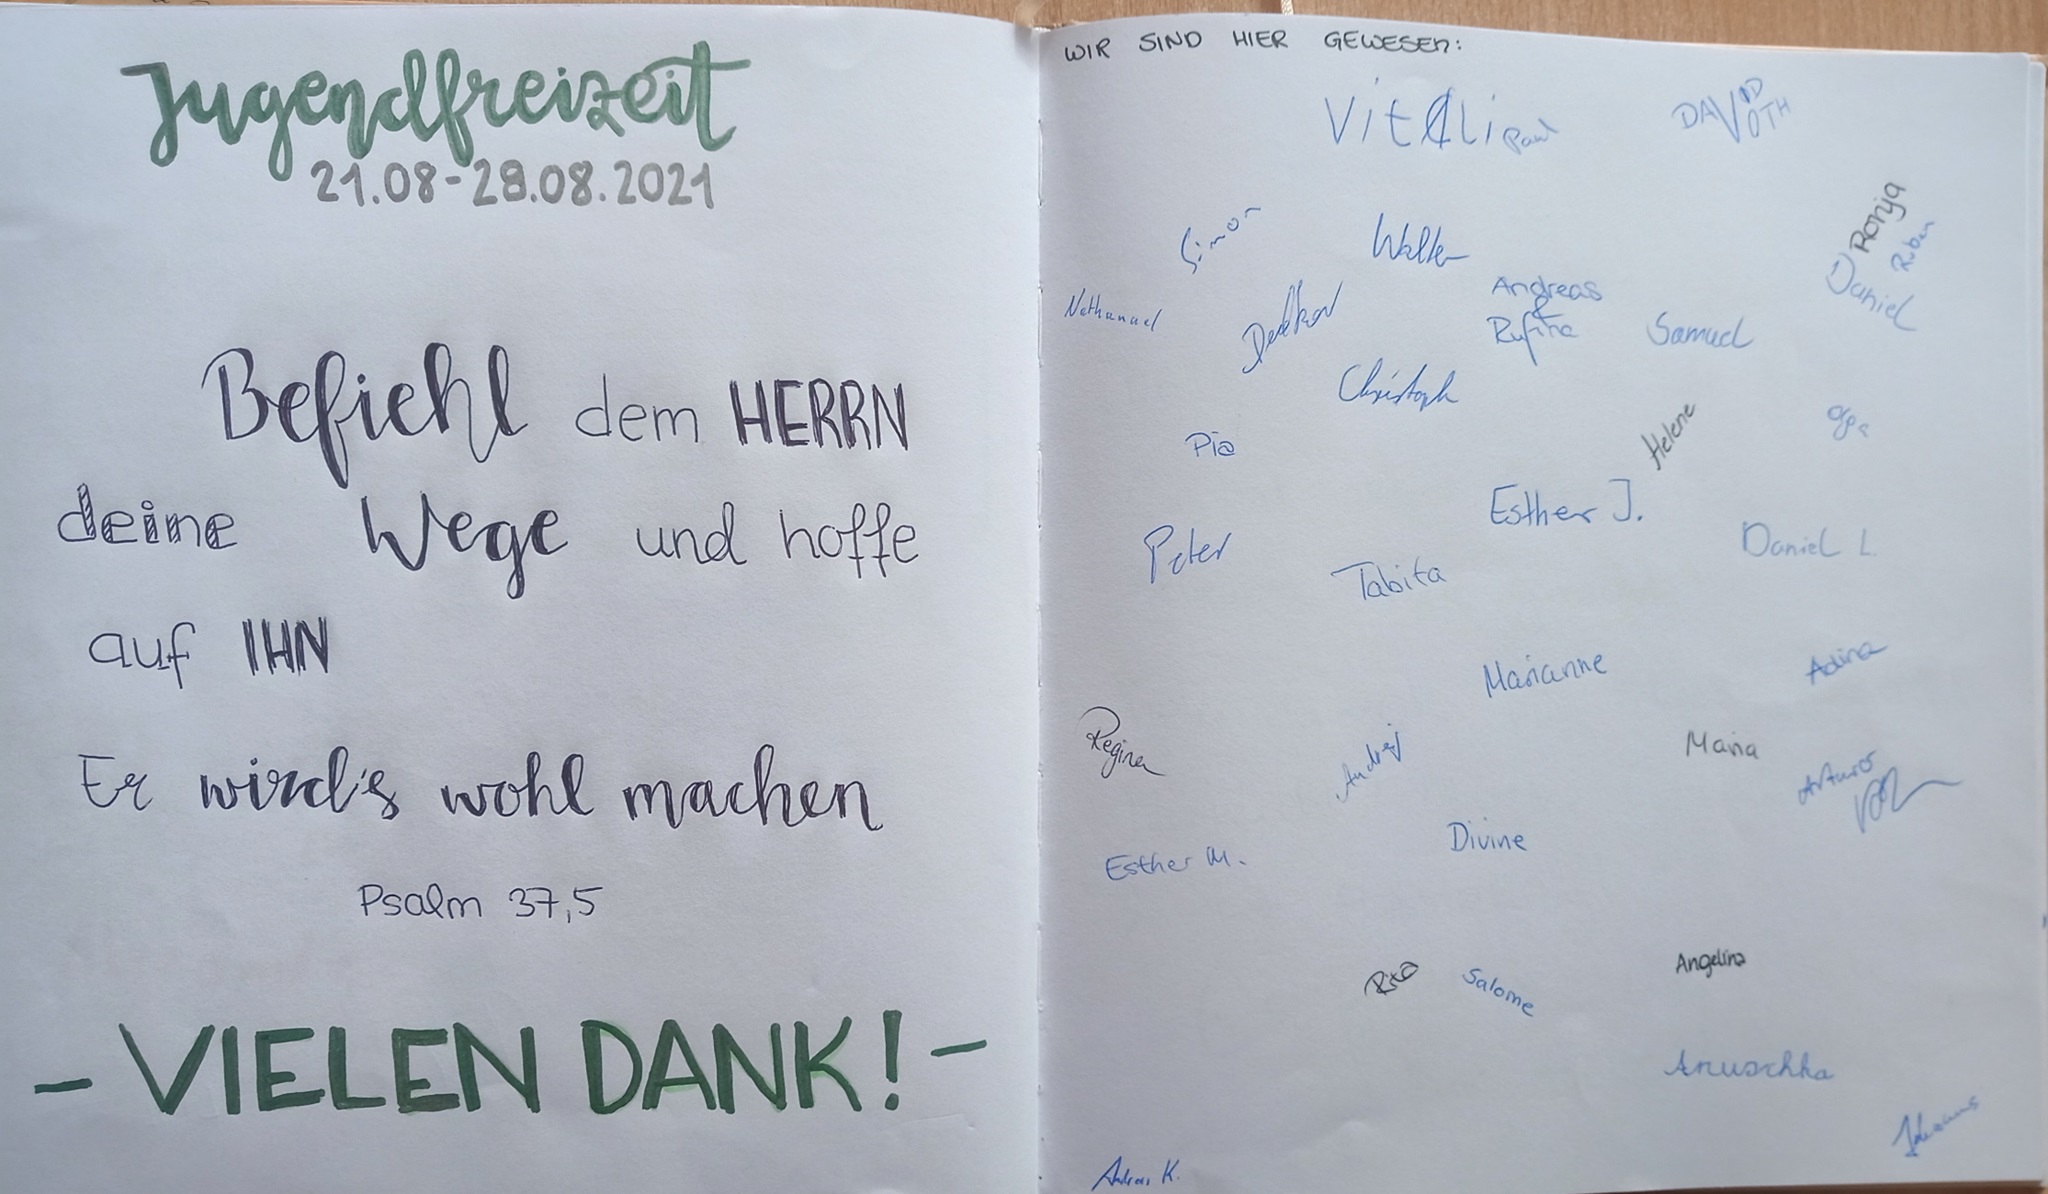 Jugendfreizeit
21.08-28.08.2021
Befiehl dem HERRN
deine Wege und hoffe
auf IHN
Er wird's wohl machen
Psalm 37,5
- VIELEN DANK! -
WIR SIND HIER GEWESEN:
Vitali Paul
DAVID VOTH
Ronja
Simon
Walter
Ruben
Daniel
Nathanael
Andreas
&
Rufina
Samuel
Christoph
Helene
Pia
Esther J.
Peter
Daniel L.
Tabita
Marianne
Adina
Regina
Andrej
Maria
Arturo
Divine
Esther M.
Rita
Salome
Angelina
Anuschka
Johannes
Andreas K.